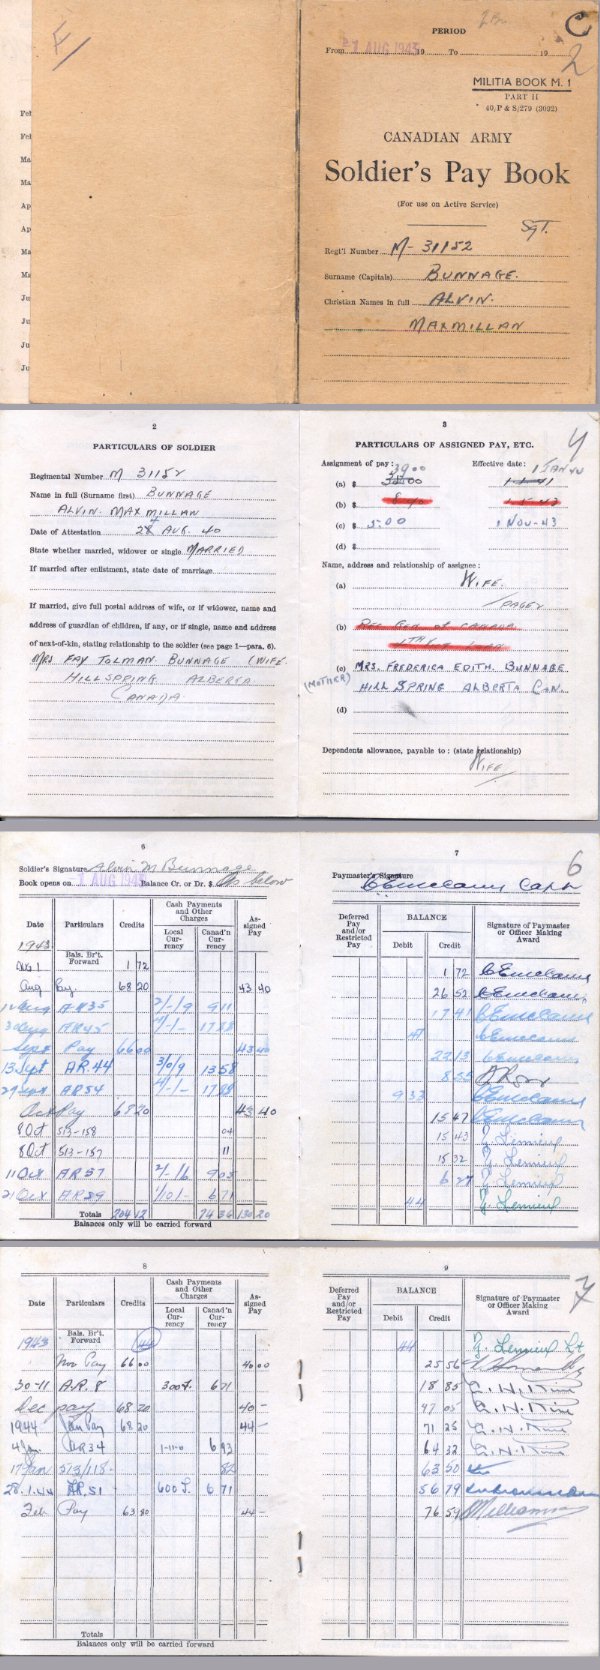 E
Feb
Feb
Ma
Ma
Ap
Ap
Ma
Ma
Ju
Ju
Ju
Ju
C
2
PERIOD
From 21 AUG 1943 19 To 19
MILITIA BOOK M. 1
PART II
40, P & S/279 (3092)
CANADIAN ARMY
Soldier's Pay Book
(For use on Active Service)
Sgt.
Regt'l Number M-31152
Surname (Capitals) BUNNAGE.
Christian Names in full ALVIN.
MAXMILLAN
2
PARTICULARS OF SOLDIER
Regimental Number M 31152
Name in full (Surname first) BUNNAGE
ALVIN. MAXMILLAN
Date of Attestation AUG. 40
State whether married, widower or single MARRIED
If married after enlistment, state date of marriage
If married, give full postal address of wife, or if widower, name and
address of guardian of children, if any, or if single, name and address
of next-of-kin, stating relationship to the soldier (see page 1—para. 6).
MRS FAY TOLMAN BUNNAGE (WIFE
HILLSPRING ALBERTA
CANADA
3
4
PARTICULARS OF ASSIGNED PAY, ETC.
Assignment of pay: 39 00 Effective date: 1 JAN 44
(a) $
(b) $
(c) $ 5.00 1 NOV-43
(d) $
Name, address and relationship of assignee:
(a) WIFE.
(b) REC GEN of CANADA
(c) MRS. FREDERICA EDITH. BUNNAGE
(MOTHER) HILL SPRING ALBERTA CAN.
(d)
Dependents allowance, payable to: (state relationship)
WIFE
6
Soldier's Signature Alvin M Bunnage
Book opens on 1 AUG 1943 Balance Cr. or Dr. $ As below
Date Particulars Credits Cash Payments and Other Charges Assigned Pay
Local Currency Canad'n Currency
1943 Bals. Br't. Forward
AUG 1 1 72
Aug Pay. 68 20 43 40
12 Aug AR35 2/-/9 9 11
AR45 4/-/-
Sept Pay 66 00 43 40
13 Sept AR.44 3/0/9 13 58
29 Sept AR54 4/-/-
Oct Pay 68 20 43 40
8 Oct 513-158 04
8 Oct 513-157 11
11 Oct AR37 2/-/6 9 05
21 Oct AR89 1/10/- 6 71
Totals 204 12 74 36 130 20
Balances only will be carried forward
7
6
Paymaster's Signature
Capt
Deferred Pay and/or Restricted Pay BALANCE Signature of Paymaster or Officer Making Award
Debit Credit
1 72
26 52
17 41
22 13
8 55
9 33
15 47
15 43
15 32
6 27
44
8
Date Particulars Credits Cash Payments and Other Charges Assigned Pay
Local Currency Canad'n Currency
1943 Bals. Br't. Forward 44
Nov Pay 66 00 40 00
30-11 A.R. 8 300 f. 6 71
Dec pay 68 20 40 -
1944 Jan Pay 68 20 44 -
4 Jan AR34 1-11-0 6 93
17 Jan 513/118 82
28.1.44 AR.51 600 L. 6 71
Feb Pay 63 80 44 -
Totals
Balances only will be carried forward
9
7
Deferred Pay and/or Restricted Pay BALANCE Signature of Paymaster or Officer Making Award
Debit Credit
44
25 56
18 85
47 05
71 25
64 32
63 50
56 79
76 59 Williamson